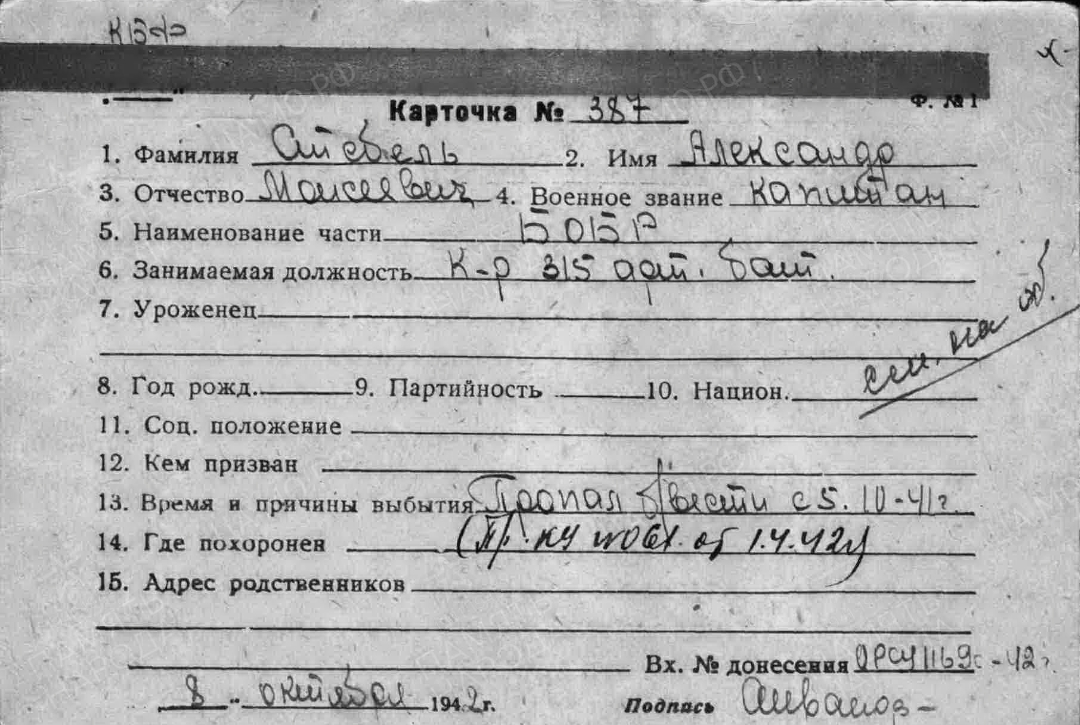 КБФ
Ф. № 1
Карточка № 387
1. Фамилия Стебель 2. Имя Александр
3. Отчество Моисеевич 4. Военное звание капитан
5. Наименование части БОБР
6. Занимаемая должность К-р 315 арт. бат.
7. Уроженец
см. на об.
8. Год рожд. 9. Партийность 10. Национ.
11. Соц. положение
12. Кем призван
13. Время и причины выбытия Пропал б/вести с 5.10-41г.
14. Где похоронен (Пр. от 1.4.42г)
15. Адрес родственников
Вх. № донесения -42г
8 октября 1942г. Подпись